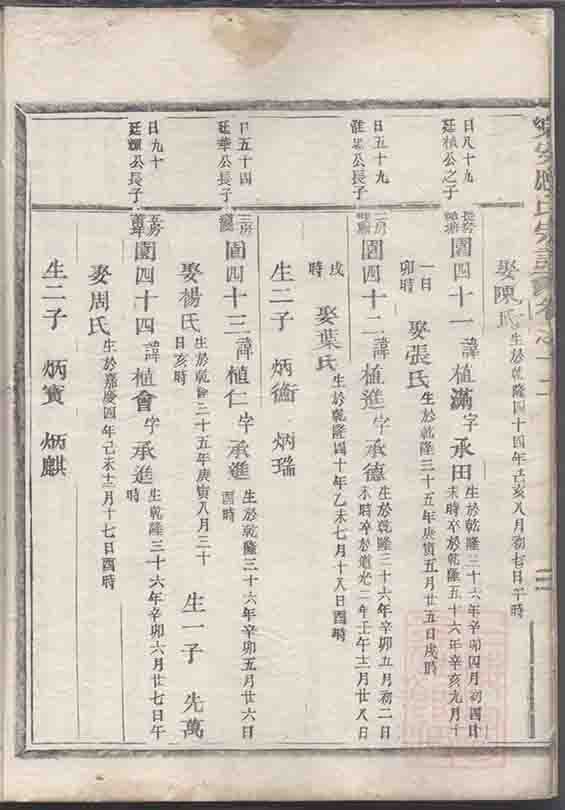 氏宗譜 卷之十二
娶陳氏
生於乾隆四十四年己亥八月初七日子時
日八十九
廷楨公之子
長房
圖四十一 諱植滿字承田
生於乾隆三十六年辛卯四月初四日
未時卒於乾隆五十六年辛亥九月十
一日
卯時
娶張氏
生於乾隆三十五年庚寅五月廿五日戌時
日五十九
公長子
二房
圖四十二 諱植進字承德
生於乾隆三十六年辛卯五月初二日
未時卒於道光二年壬午十二月廿八日
戌
時
娶葉氏
生於乾隆四十年乙未七月十八日酉時
生二子 炳衡 炳瑞
日五十四
廷華公長子
三房
圖四十三 諱植仁字承進
生於乾隆三十六年辛卯五月廿六日
酉時
娶楊氏
生於乾隆三十五年庚寅八月三十
日亥時
生一子 先萬
日九十
公長子
長房
圖四十四 諱植會字承進
生乾隆三十六年辛卯六月廿七日午
時
娶周氏
生於嘉慶四年己未十二月十七日酉時
生二子 炳寶 炳麒